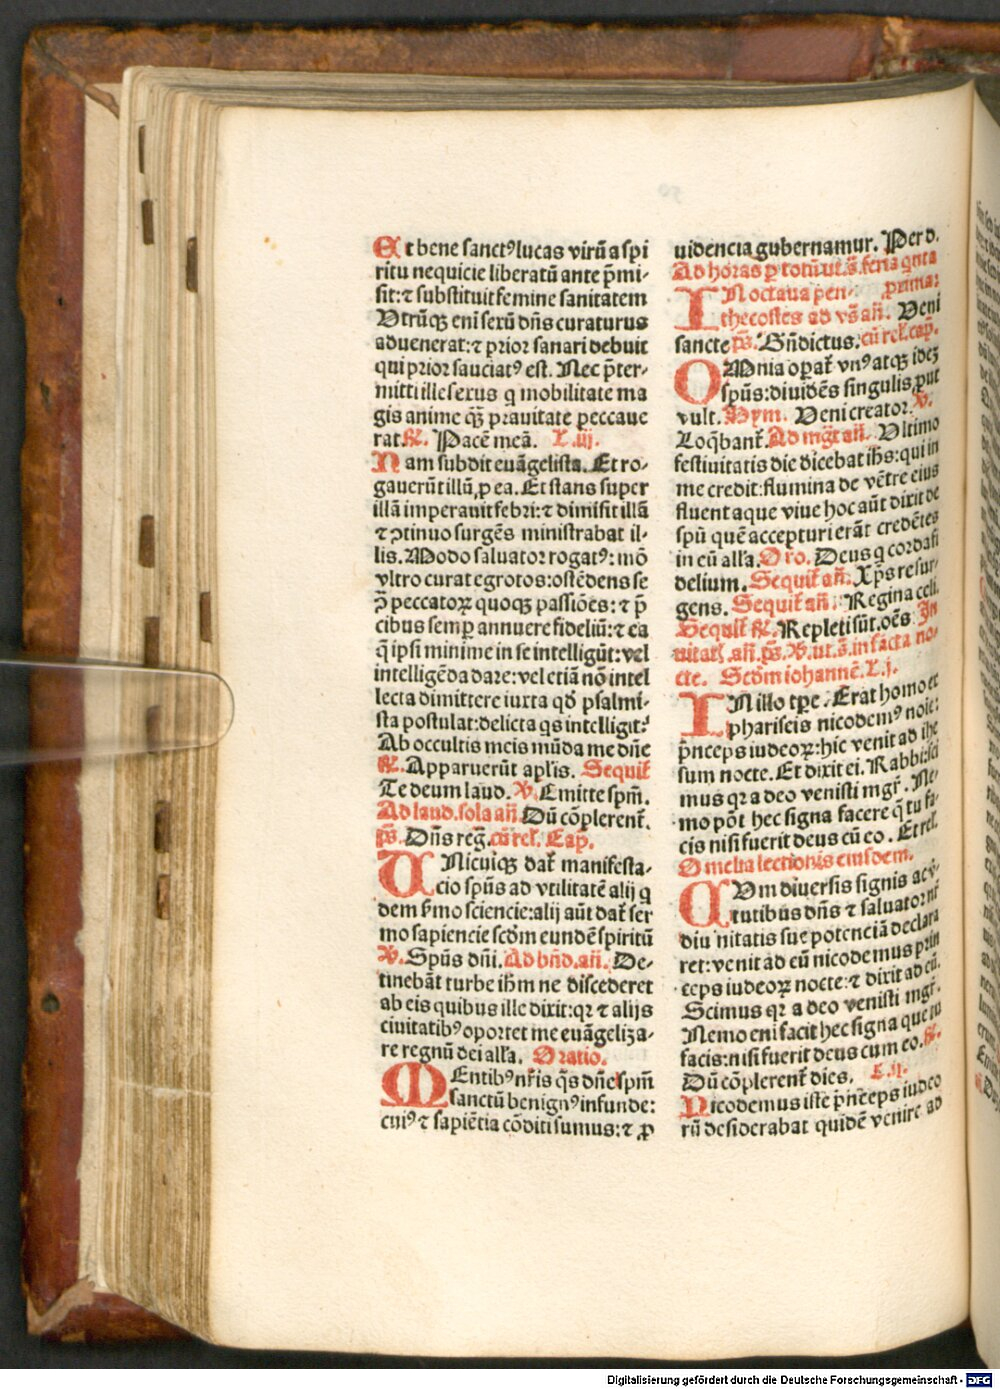 Et bene sanctꝰlucas virū a spi
ritu nequicie liberatū ante p̄mi-
sit:⁊ substituit femine sanitatem
Vtrūqꝫ eni sexū dn̄s curaturus
aduenerat:⁊ prior sanari debuit
qui prior sauciatꝰ est. Nec p̄ter-
mitti ille sexus q mobilitate ma
gis anime qꝫ̄ prauitate peccaue
rat. ꝶ. Pacē meā. L.iij.
Nam subdit euāgelista. Et ro-
gauerūt illū ꝓ ea. Et stans super
illā imperauit febri:⁊ dimisit illā
⁊ ꝯtinuo surgēs ministrabat il-
lis. Modo saluator rogatꝰ: mō
vltro curat egrotos:ostēdens se
ꝯ̄ peccatoꝝ quoqꝫ passiōes:⁊ p̄
cibus semꝑ annuere fideliū:⁊ ea
q̄ ipsi minime in se intelligūt:vel
intelligēda dare:vel etiā nō intel
lecta dimittere iuxta qd̄ psalmi-
sta postulat:delicta qs intelligit:
Ab occultis meis mūda me dn̄e
ꝶ. Apparuerūt apl̄is. Sequit̄
Te deum laud. ℣. Emitte spm̄.
Ad laud. sola an̄ Dū cōplerent̄.
ps̄. Dn̄s reḡ. cū rel̄. Cap̄.
VNicuiqꝫ dat̄ manifesta-
cio spūs ad vtilitatē alij q
dem ẜmo sciencie:alij aūt dat̄ ser
mo sapiencie scd̄m eundē spiritū
℣. Spūs dn̄i. Ad bn̄d. an̄. De-
tinebāt turbe ih̄m ne discederet
ab eis quibus ille dixit:qꝛ ⁊ alijs
ciuitatibꝰ oportet me euāgeliza-
re regnū dei all̄a. Oratio.
MEntibꝰ nr̄is qs̄ dn̄e spm̄
sanctū benignꝰ infunde:
cuiꝰ ⁊ sapiētia cōditi sumus:⁊ ꝓ
uidencia gubernamur. Per d.
Ad horas ꝑ totū ut.s. feria qnta
IN octaua pen- prima:
thecostes ad vs̄ an̄. Veni
sancte ps̄. Bn̄dictus. cū rel̄. cap̄.
OMnia opat̄ vnꝰ atqꝫ idē
spūs:diuidēs singulis ꝓut
vult. Hym. Veni creator. ℣.
Loq̄bant̄. Ad mgt̄ an̄. Vltimo
festiuitatis die dicebat ih̄s:qui in
me credit:flumina de vētre eius
fluent aque viue hoc aūt dixit de
spū quē accepturi erāt credētes
in eū all̄a. Oro. Deus q corda fi
delium. Sequit̄ an̄. Xp̄s resur-
gens. Sequit̄ an̄. Regina celi.
Sequit̄ ꝶ. Repleti sūt oēs. In
uitat̄. an̄. ps̄. ℣. ut.s. in sacta no-
cte. Scd̄m iohannē. L.j.
IN illo tꝑe. Erat homo ex
phariseis nicodemꝰ noie:
p̄nceps iudeoꝝ:hic venit ad ihe
sum nocte. Et dixit ei. Rabbi:sci
mus qꝛ a deo venisti mgr̄. Ne-
mo pōt hec signa facere q̄ tu fa-
cis nisi fuerit deus cū eo. Et rel̄.
Omelia lectionis eiusdem.
CVm diuersis signis ac v̄-
tutibus dn̄s ⁊ saluator nr̄
diuinitatis sue potenciā declara
ret:venit ad eū nicodemus prin
ceps iudeoꝝ nocte:⁊ dixit ad eū.
Scimus qꝛ a deo venisti mgr̄.
Nemo eni facit hec signa que tu
facis:nisi fuerit deus cum eo. ꝶ.
Dū cōplerent̄ dies. L.ij.
Nicodemus iste p̄nceps iudeo
rū desiderabat quidē venire ad
Digitalisierung gefördert durch die Deutsche Forschungsgemeinschaft - DFG